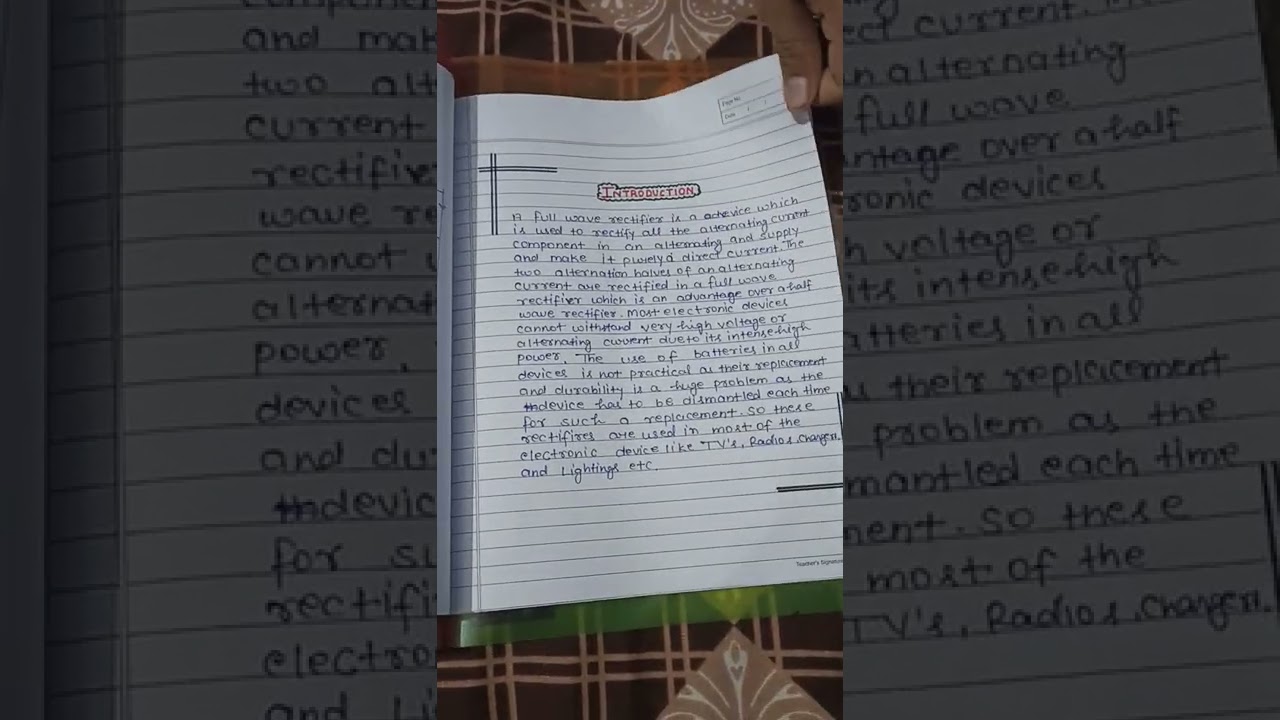 Page No.
Date / /
INTRODUCTION
A full wave rectifier is a device which
is used to rectify all the alternating current
component in an alternating and supply
and make it purely a direct current. The
two alternation halves of an alternating
current are rectified in a full wave
rectifier which is an advantage over a half
wave rectifier. Most electronic devices
cannot withstand very high voltage or
alternating current due to its intense high
power. The use of batteries in all
devices is not practical as their replacement
and durability is a huge problem as the
device has to be dismantled each time
for such a replacement. So these
rectifires are used in most of the
electronic device like TV's, Radios, Chargers.
and Lightings etc.
Teacher's Signature